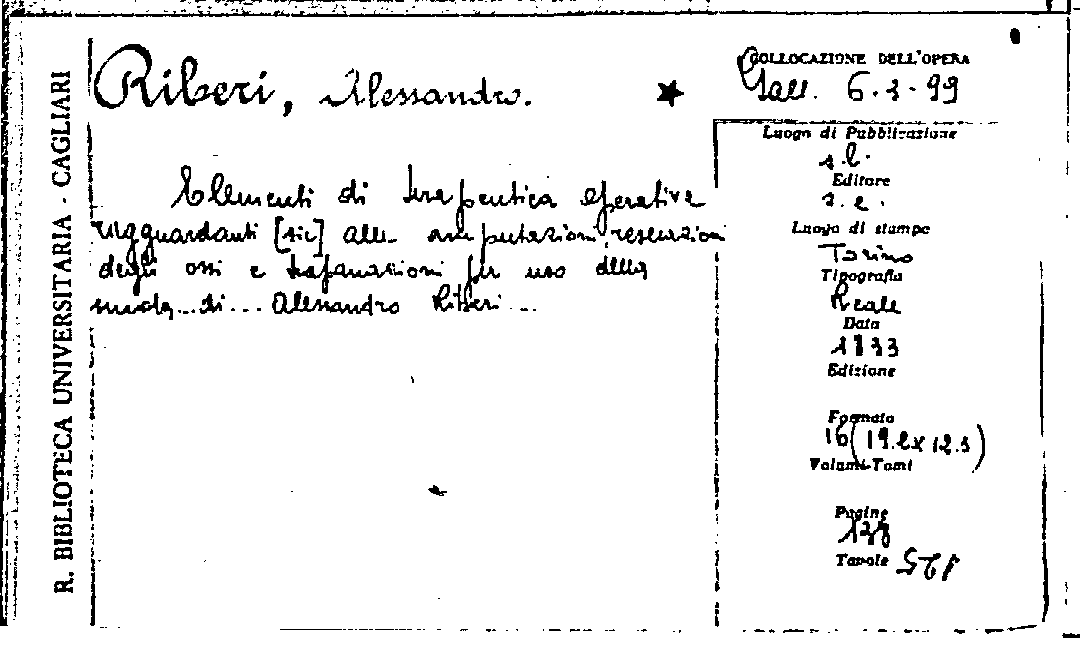 R. BIBLIOTECA UNIVERSITARIA - CAGLIARI
Riberi, Alessandro.
Elementi di terapeutica operativa
risgguardanti [sic] alle amputazioni, resecazioni
degli ossi e trapanazioni per uso della
scuola ... di ... Alessandro Riberi ...
COLLOCAZIONE DELL'OPERA
Gall. 6.3.99
Luogo di Pubblicazione
s.l.
Editore
s.e.
Luogo di stampa
Torino
Tipografia
Reale
Data
1833
Edizione
Formato
16 (19.2x12.3)
Volumi-Tomi
Pagine
Tavole